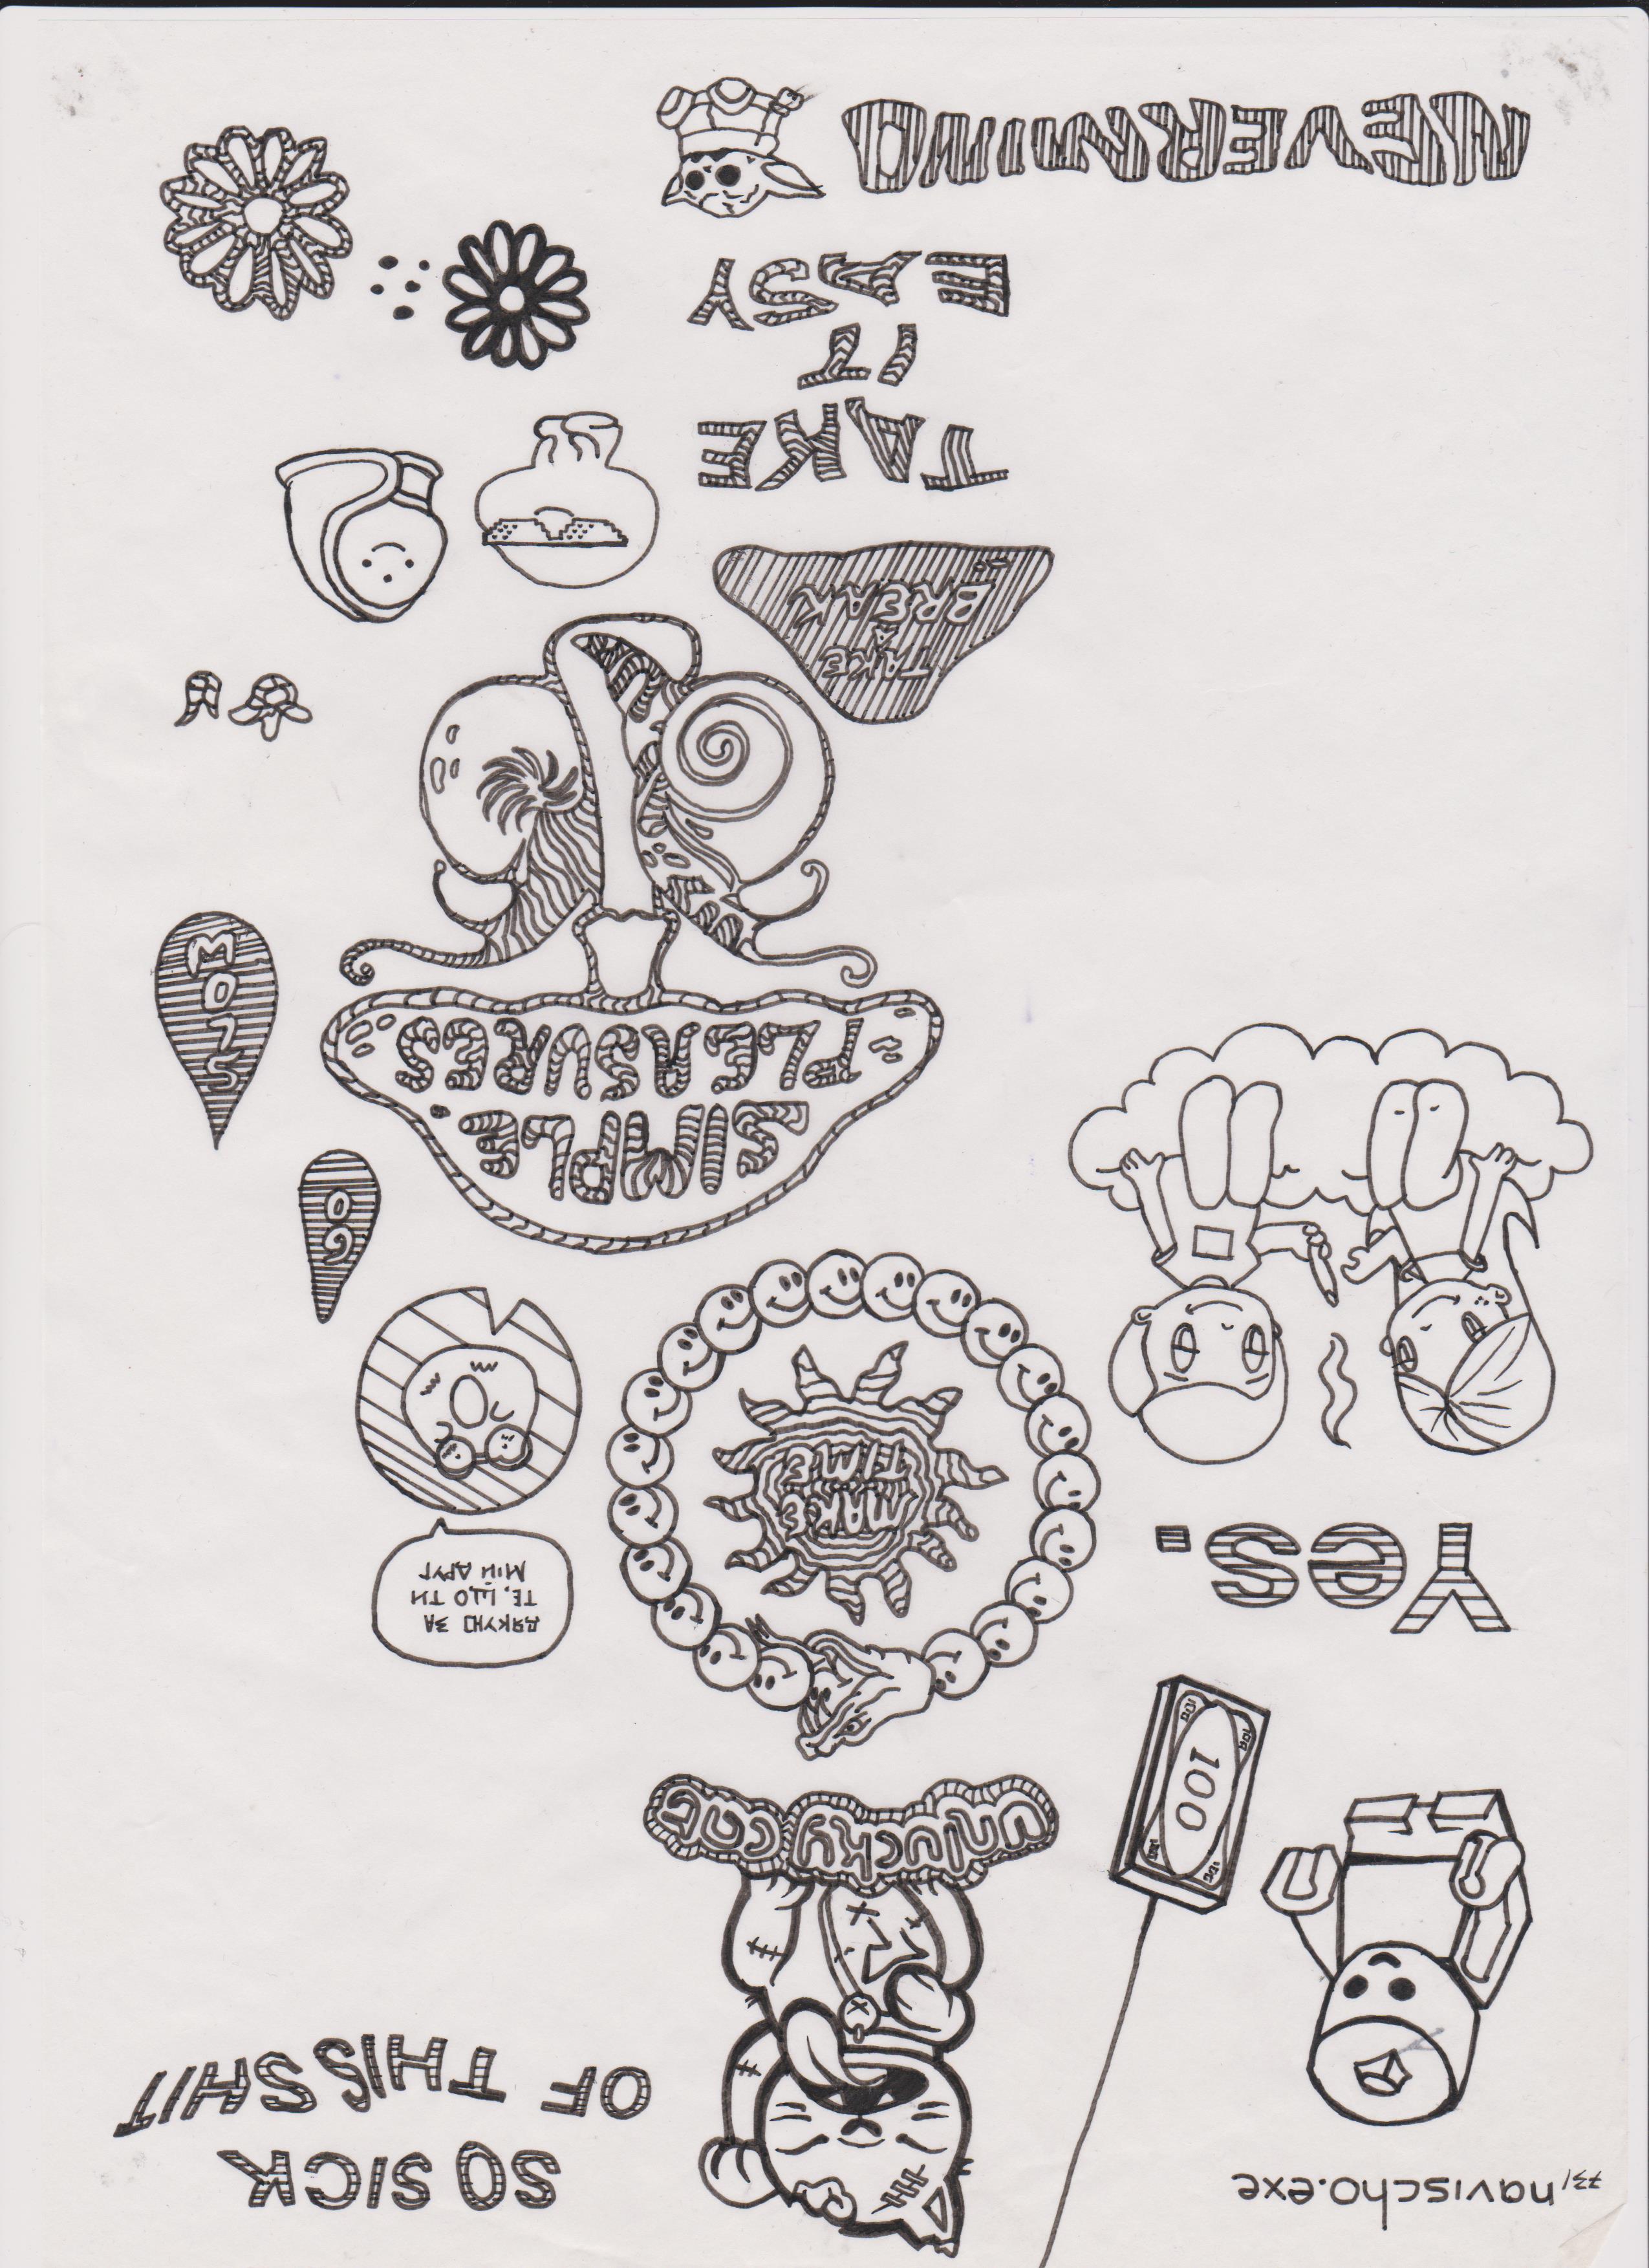 navischo.exe
SO SICK
OF THIS SHIT
100
100
100
100
100
unlucky cat
Yes.
MAKE
TIME
ДЯКУЮ ЗА
ТЕ, ЩО ТИ
МІЙ ДРУГ
GO
SLOW
SIMPLE.
PLEASURES.
TAKE
A
BREAK
TAKE
IT
EASY
NEVERMIND